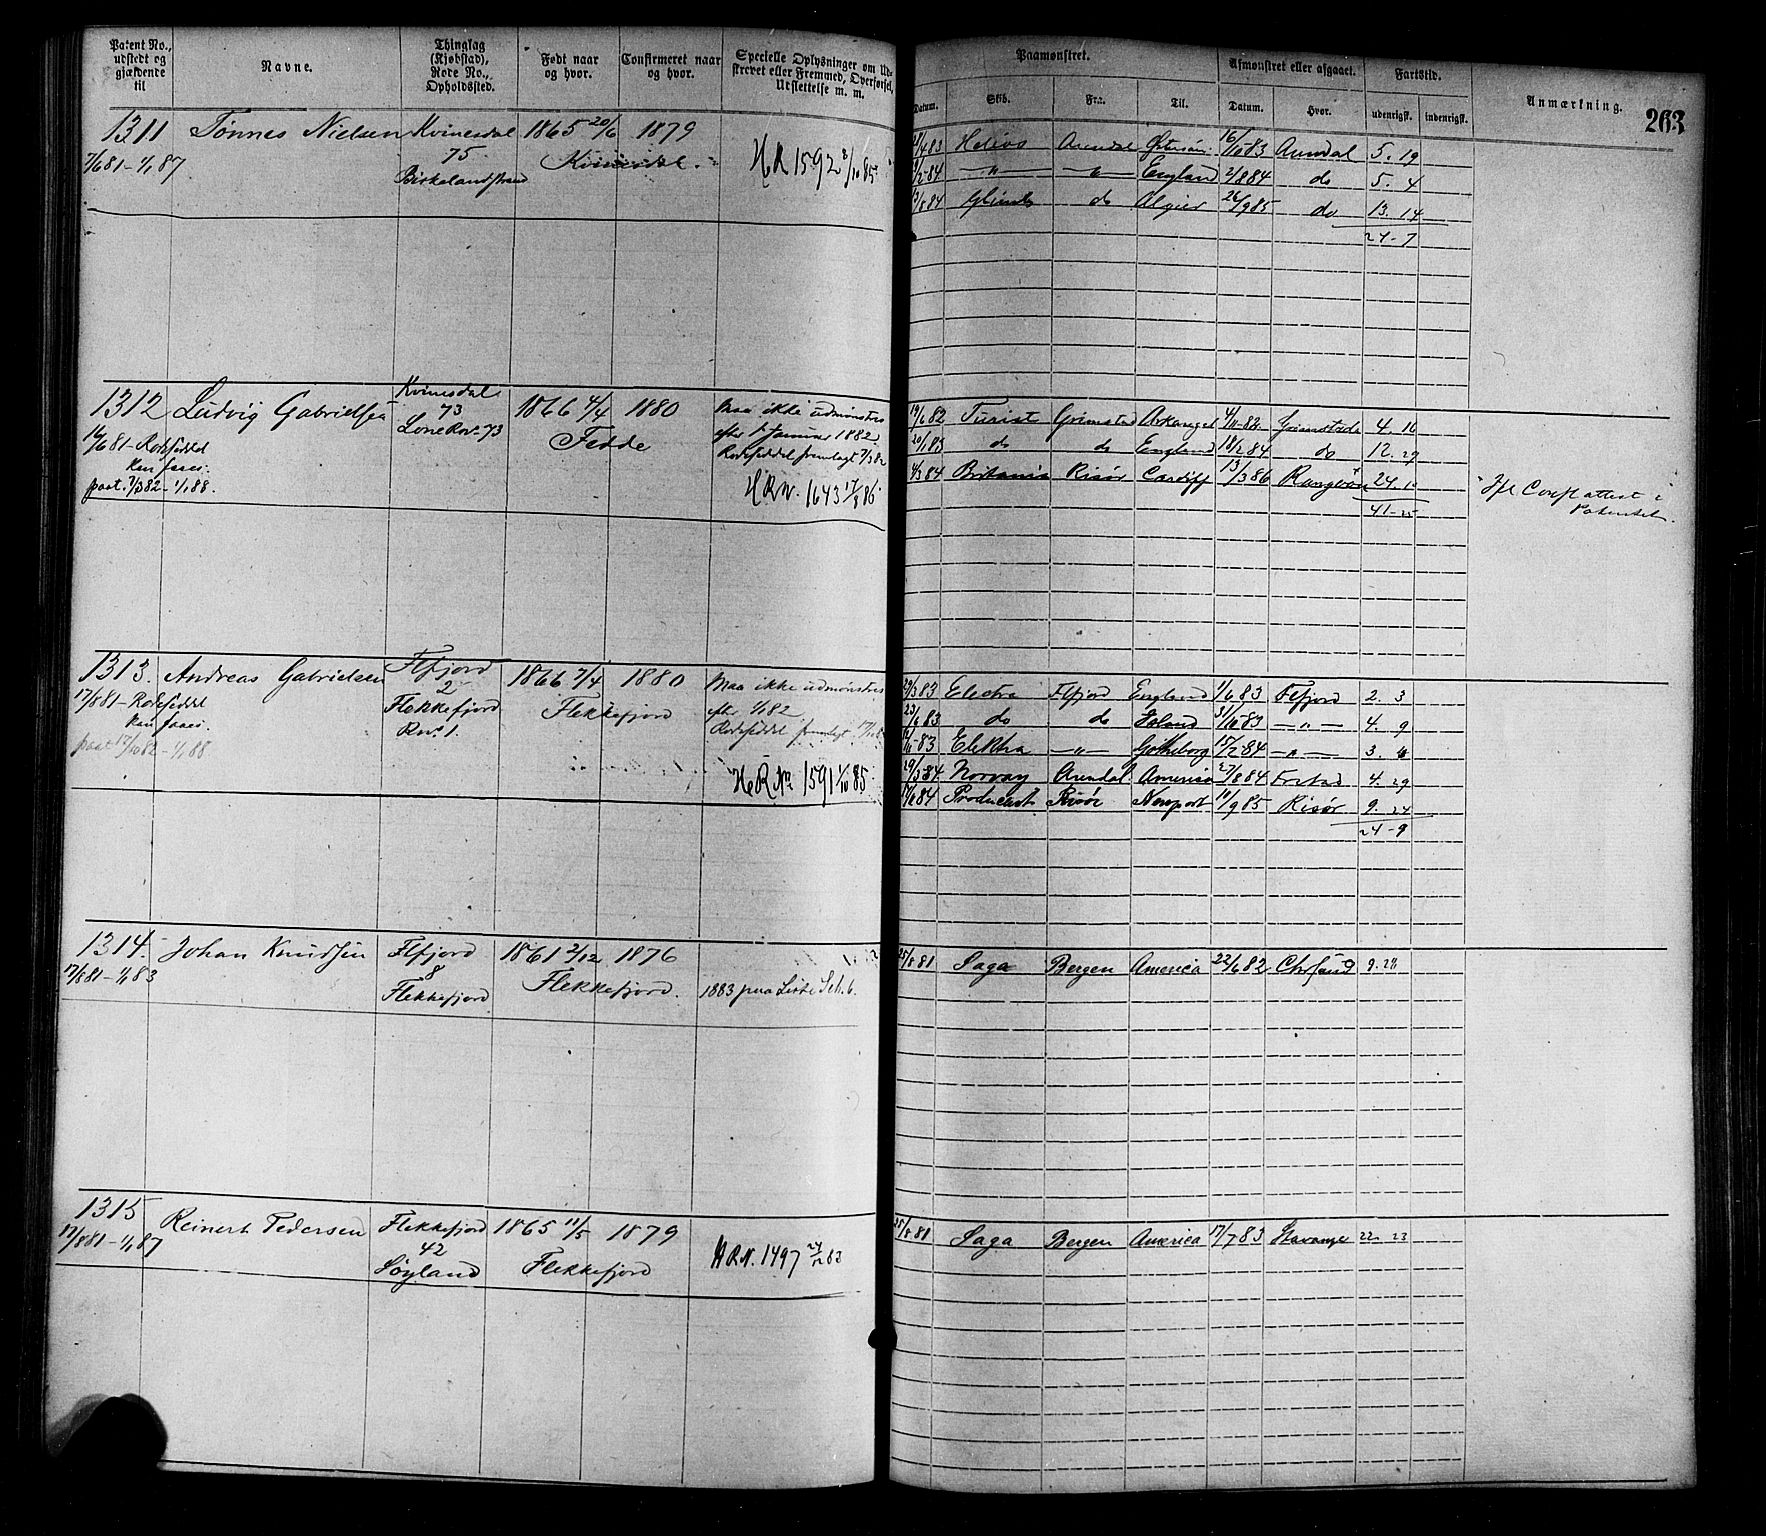 Patent No., udstedt og gjældende til
Navne.
Thinglag (Kjøbstad), Rode No., Opholdssted.
Født naar og hvor.
Confirmeret naar og hvor.
Specielle Oplysninger om Udskrevet eller Fremmed, Overførsel, Udslettelse m. m.
Paamønstret.
Afmønstret eller afgaaet.
Fartstid.
Anmærkning.
263
Datum. Skib. Fra. Til. Datum. Hvor. udenrigsk. indenrigsk.
1311 Tönnes Nielsen Kvinesdal 1865 20/6 1879
7/6 81 - 1/1 87 75. Kvinesdal.
Birkelandstrand
HR 1592
Helios Arendal 16/10 83 Arendal 5. 19
— " — — " — England 2/8 84 do 5. 4
do Algier 26/9 85 do 13. 14
24 - 7
1312 Ludvig Gabrielsen Kvinesdal 1866 4/4 1880 Maa ikke udmønstres
73 Fedde efter 1 Januar 1882.
Lone Rno 73 Rodeseddel fremlagt 7/3 82
16/6 81 - Rodeseddel
paat. 7/3 82 - 1/1 88.
HRN. 1643 17/8 86
19/6 82 Turist Grimstad Arkangel 4/11 82 Grimstad 4. 16
20/1 83 do do England 18/2 84 do 12. 29
4/3 84 Britania Risör Cardiff 13/3 86 Rangoon 24. 10
41 - 25
Conf attest i Patentet.
1313. Andreas Gabrielsen Flfjord 1866 7/4 1880 Maa ikke udmønstres
17/8 81 - Rodeseddel 2 Flekkefjord efter 1/1 82
Flekkefjord Rodeseddel fremlagt
Rno 1.
paat 17/10 82 - 1/1 88
HRNo 1591 1/10 85
29/3 83 Electra Flfjord England 1/6 83 Flfjord 2. 3
23/6 83 do do 31/10 83 — " — 4. 9
83 Elektra — " — Gøtheborg 15/2 84 — " — 3.
29/3 84 Norway Arendal America 27/8 84 4. 29
84 Producent Risör Newport 11/9 85 Risör 9. 24
24 - 9
1314. Johan Knudsen Flfjord 1861 2/12 1876
17/8 81 - 1/1 83 8 Flekkefjord.
Flekkefjord 1883 paa Liste
25/8 81 Saga Bergen America 22/6 82 Chrsand 9. 28
1315 Reinert Pedersen Flekkefjord 1865 11/5 1879
17/8 81 - 1/1 87 42 Flekkefjord
Söyland HRN. 1497
25/8 81 Saga Bergen America 17/7 83 Stavanger 22. 23